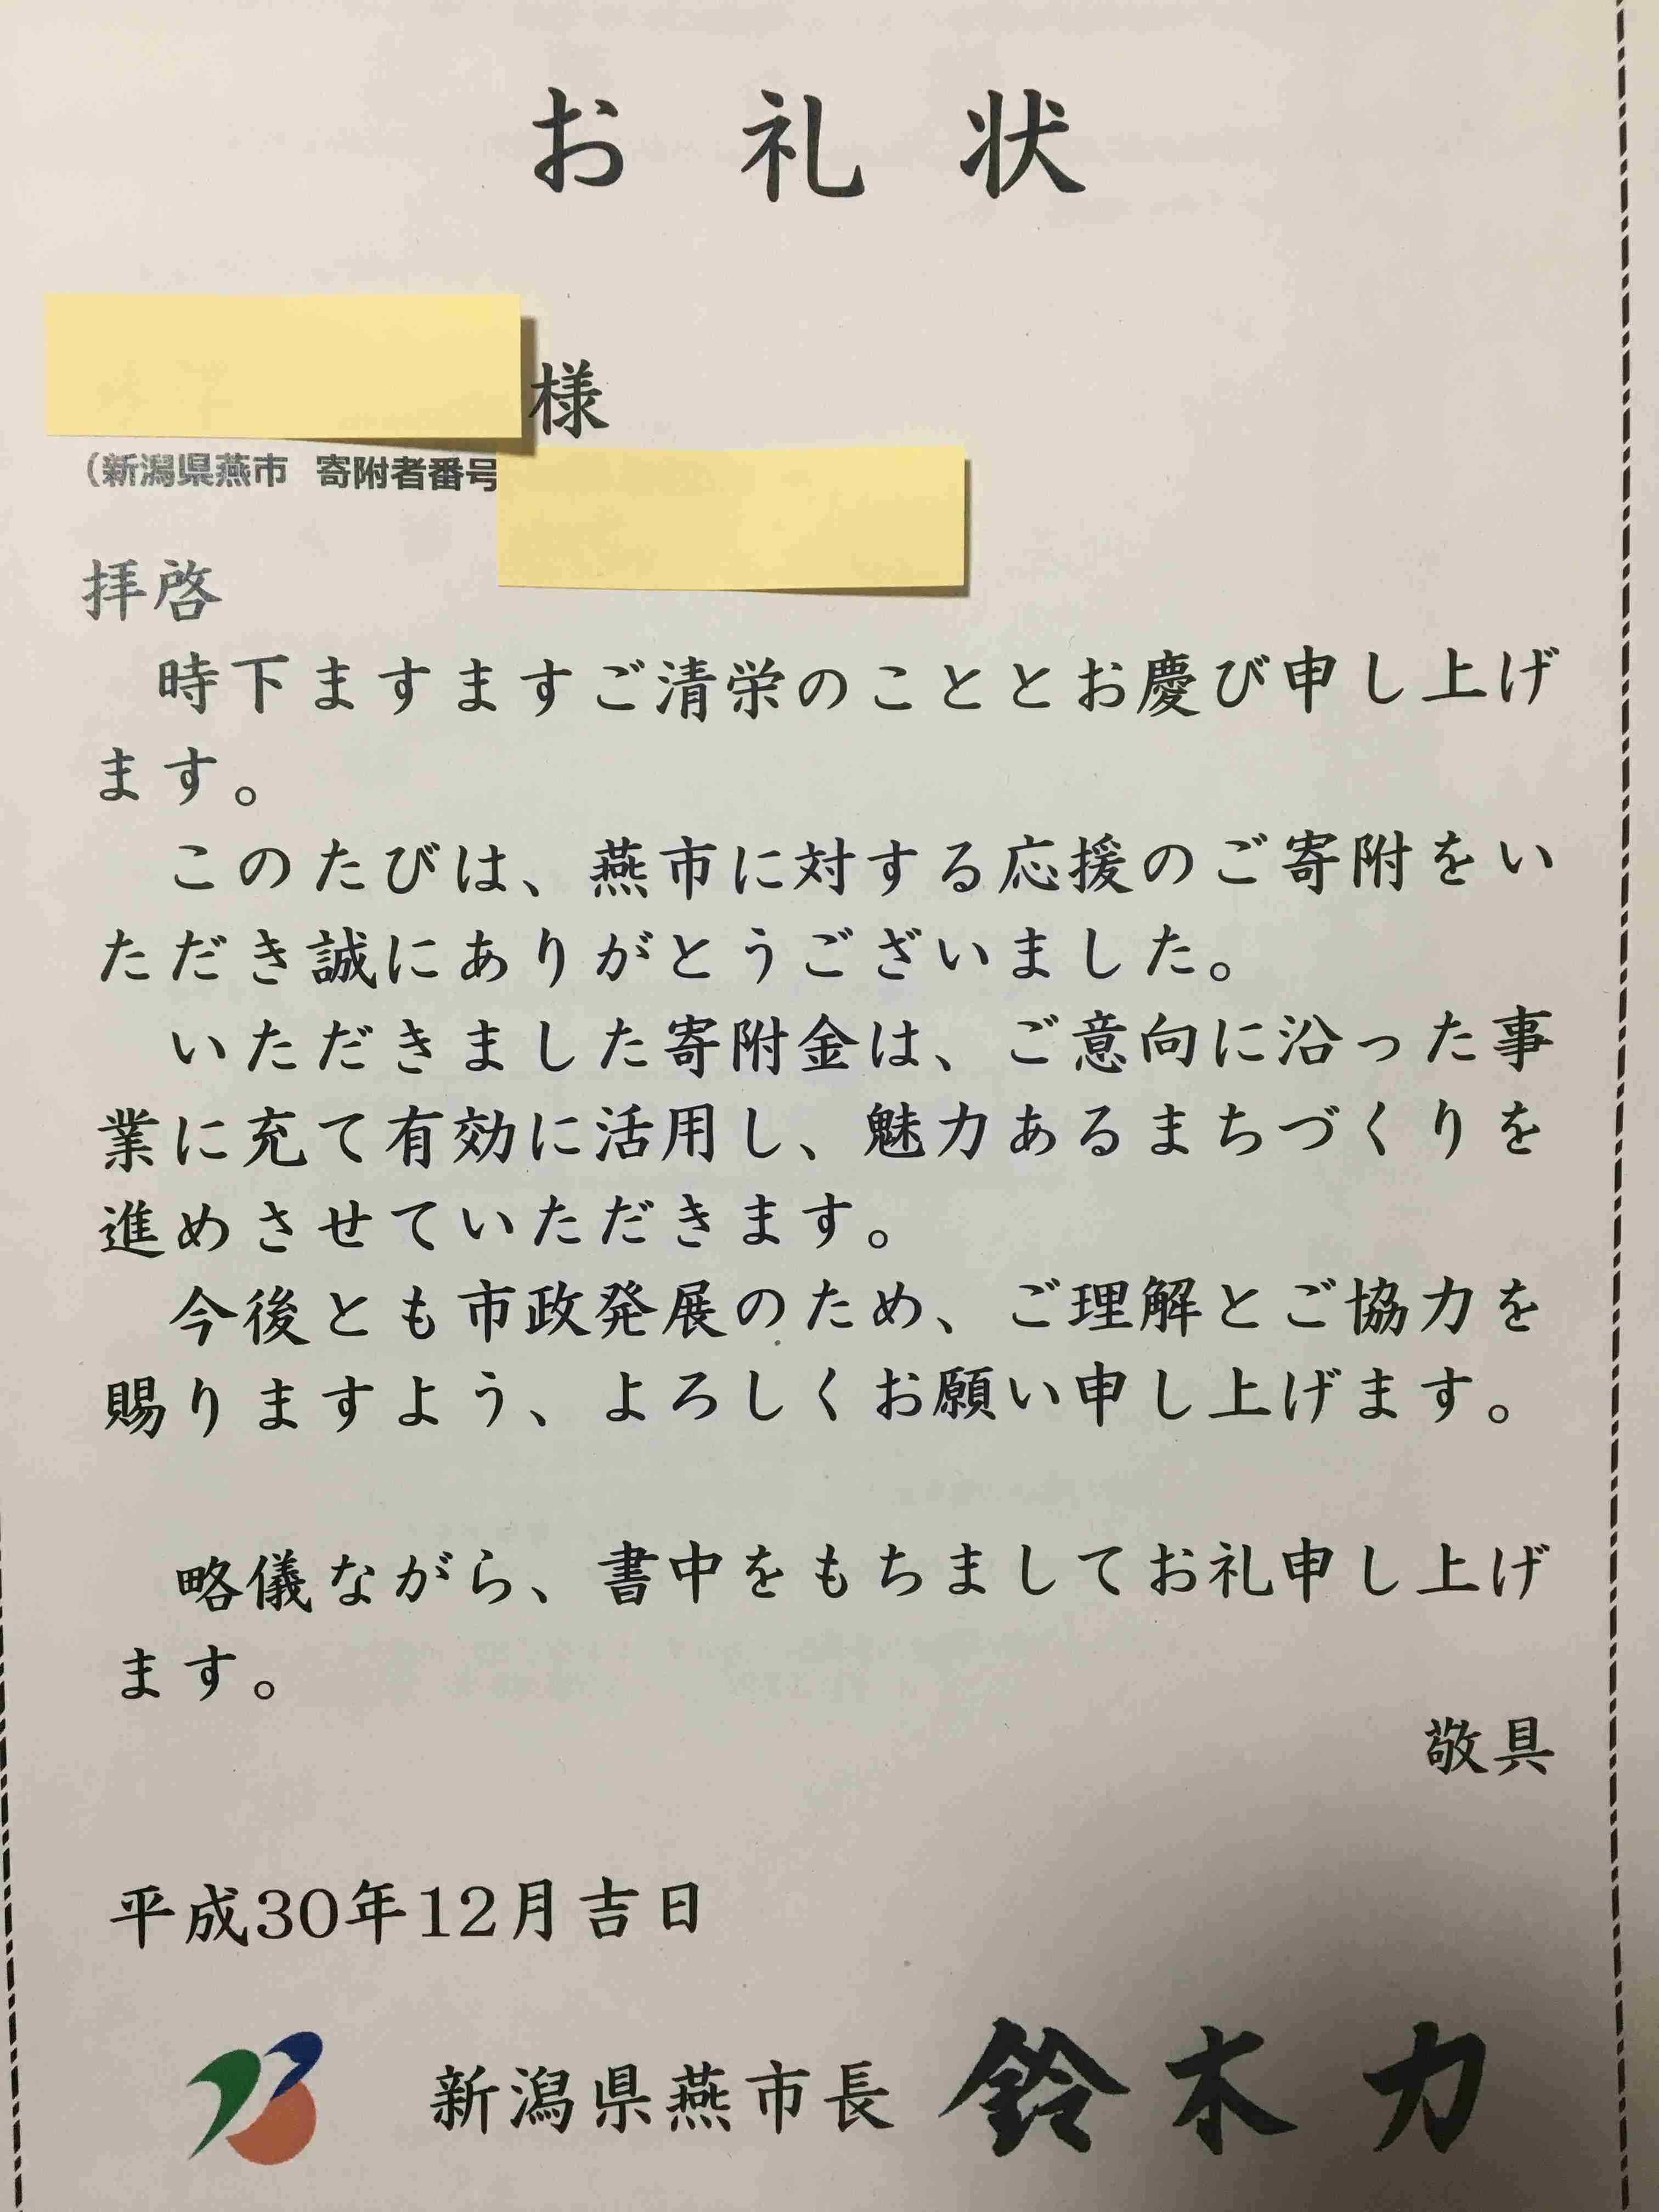 お礼状
様
（新潟県燕市　寄附者番号
拝啓
　時下ますますご清栄のこととお慶び申し上げ
ます。
　このたびは、燕市に対する応援のご寄附をい
ただき誠にありがとうございました。
　いただきました寄附金は、ご意向に沿った事
業に充て有効に活用し、魅力あるまちづくりを
進めさせていただきます。
　今後とも市政発展のため、ご理解とご協力を
賜りますよう、よろしくお願い申し上げます。
　略儀ながら、書中をもちましてお礼申し上げ
ます。
敬具
平成30年12月吉日
新潟県燕市長　鈴木力